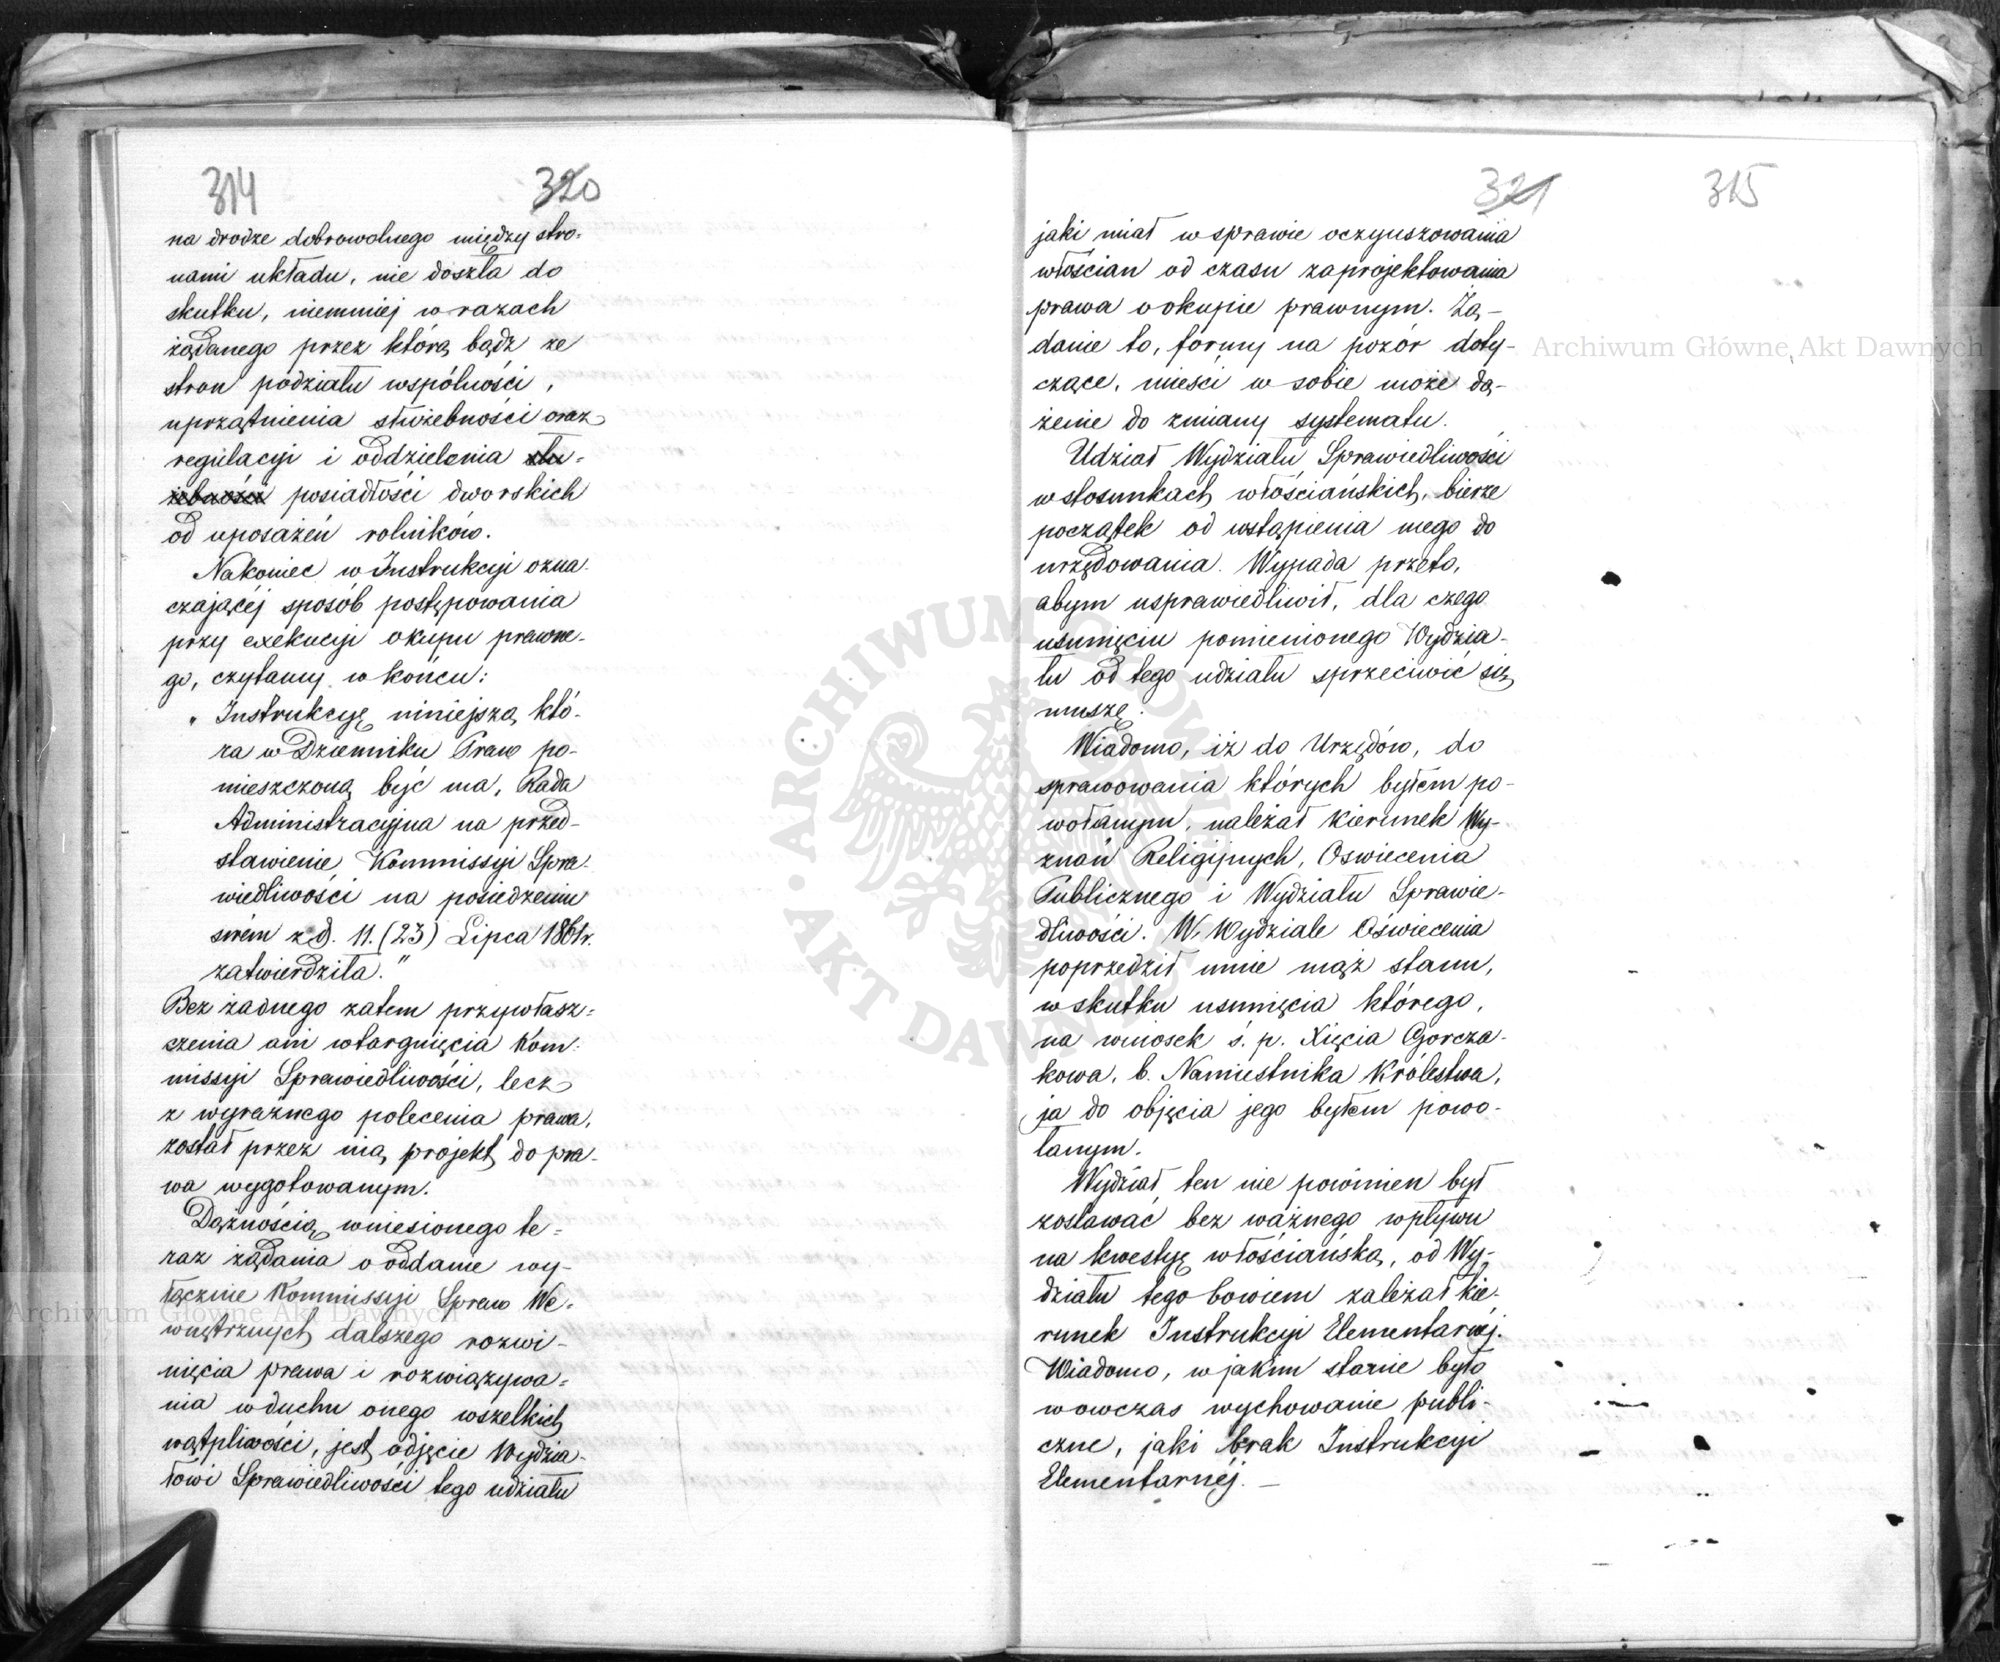 314
320
na drodze dobrowolnego między stro-
nami układu, nie doszła do
skutku, niemniej w razach
żądanego przez którą bądź ze
stron podziału wspólności,
uprzątnienia służebności oraz
regulacyi i oddzielenia słu-
żebności posiadłości dworskich
od uposażeń rolników.
Nakoniec w Instrukcyi ozna-
czającéj sposób postępowania
przy exekucyi okupu prawne-
go, czytamy w końcu:
„Instrukcyę niniejszą, któ-
ra w Dzienniku Praw po-
mieszczoną być ma, Rada
Administracyjna na przed-
stawienie Kommissyi Spra-
wiedliwości na posiedzeniu
swém z d. 11. (23) Lipca 1861r.
zatwierdziła."
Bez żadnego zatem przywłasz-
czenia ani wtargnięcia Kom-
missyi Sprawiedliwości, lecz
z wyraźnego polecenia prawa,
został przez nią projekt do pra-
wa wygotowanym.
Dążnością wniesionego te-
raz żądania o oddanie wy-
łącznie Kommissyi Spraw We-
wnętrznych dalszego rozwi-
nięcia prawa i rozwiązywa-
nia w duchu onego wszelkich
wątpliwości, jest odjęcie Wydzia-
łowi Sprawiedliwości tego udziału
321
315
jaki miał w sprawie oczynszowania
włościan od czasu zaprojektowania
prawa o okupie prawnym. Żą-
danie to, formy na pozór doty-
czące, mieści w sobie może dą-
żenie do zmiany systematu.
Udział Wydziału Sprawiedliwości
w stosunkach włościańskich, bierze
początek od wstąpienia mego do
urzędowania. Wypada przeto,
abym usprawiedliwił, dla czego
usunięciu pomienionego Wydzia-
łu od tego udziału sprzeciwić się
muszę.
Wiadomo, iż do Urzędów, do
sprawowania których byłem po-
wołanym, należał kierunek Wy-
znań Religijnych, Oswiecenia
Publicznego i Wydziału Sprawie-
dliwości. W Wydziale Oświecenia
poprzedził mnie mąż stanu,
w skutku usunięcia którego,
na wniosek ś. p. Xięcia Gorcza-
kowa, b. Namiestnika Królestwa,
ja do objęcia jego byłem powo-
łanym.
Wydział ten nie powinien był
zostawać bez ważnego wpływu
na kwestyę włościańską, od Wy-
działu tego bowiem zależał kie-
runek Instrukcyi Elementarnej.
Wiadomo, w jakim stanie było
wowczas wychowanie publi-
czne, jaki brak Instrukcyi
Elementarnéj. —
Archiwum Główne Akt Dawnych
Archiwum Główne Akt Dawnych
ARCHIWUM GŁÓWNE · AKT DAWNYCH ·